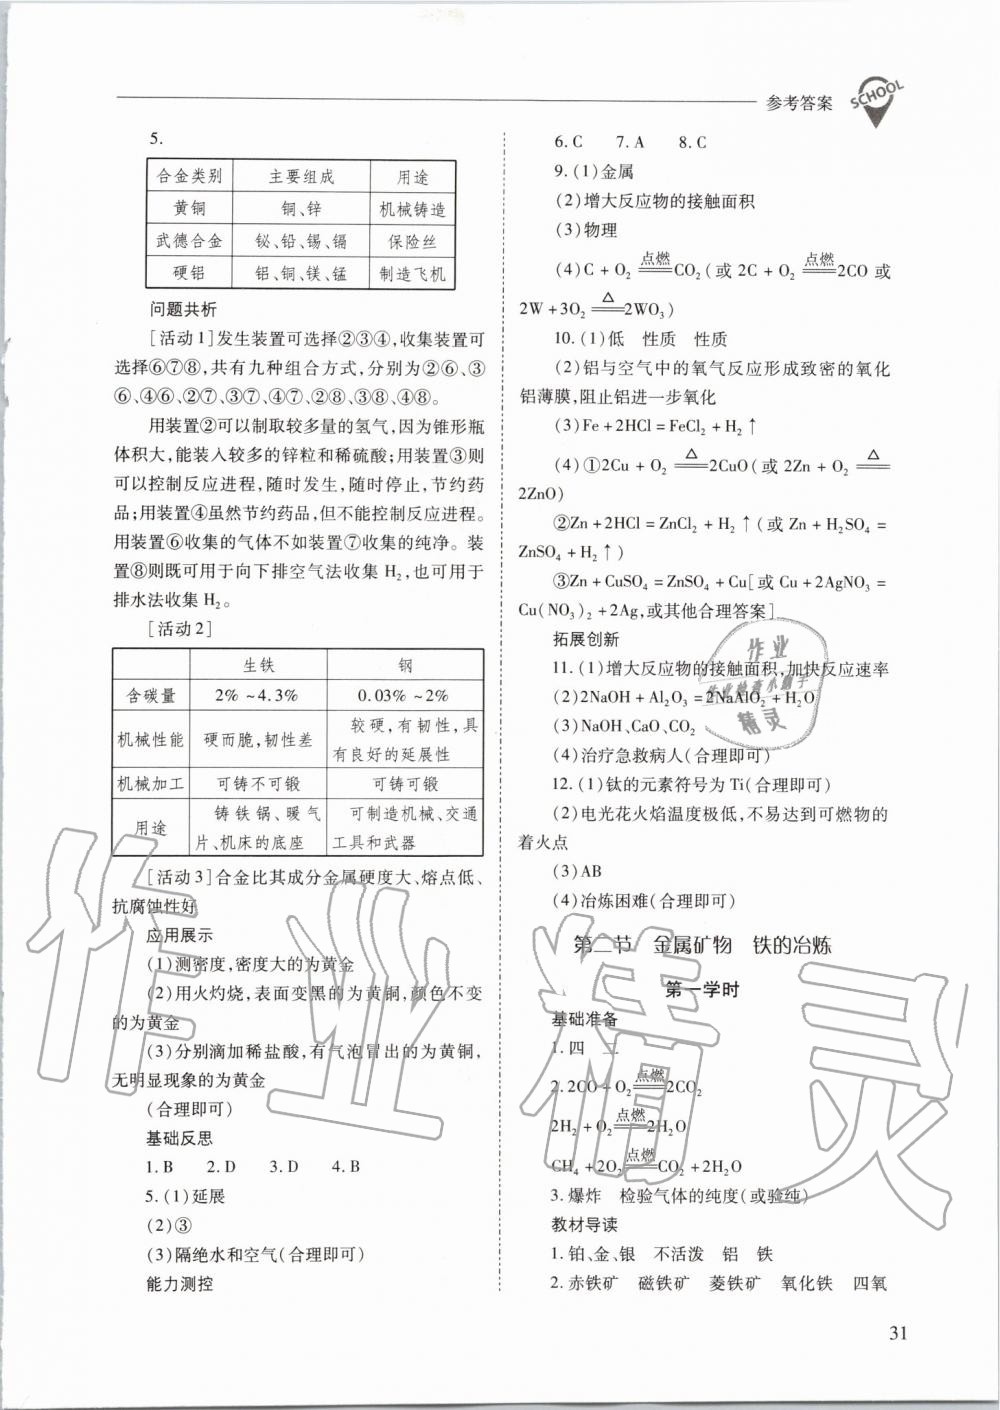 参考答案
SCHOOL
5.
合金类别 主要组成 用途
黄铜 铜、锌 机械铸造
武德合金 铋、铅、锡、镉 保险丝
硬铝 铝、铜、镁、锰 制造飞机
问题共析
[活动1]发生装置可选择②③④,收集装置可
选择⑥⑦⑧,共有九种组合方式,分别为②⑥、③
⑥、④⑥、②⑦、③⑦、④⑦、②⑧、③⑧、④⑧。
用装置②可以制取较多量的氢气,因为锥形瓶
体积大,能装入较多的锌粒和稀硫酸;用装置③则
可以控制反应进程,随时发生,随时停止,节约药
品;用装置④虽然节约药品,但不能控制反应进程。
用装置⑥收集的气体不如装置⑦收集的纯净。装
置⑧则既可用于向下排空气法收集H₂,也可用于
排水法收集H₂。
[活动2]
生铁 钢
含碳量 2%~4.3% 0.03%~2%
机械性能 硬而脆,韧性差 较硬,有韧性,具
有良好的延展性
机械加工 可铸不可锻 可铸可锻
用途 铸铁锅、暖气
片、机床的底座 可制造机械、交通
工具和武器
[活动3]合金比其成分金属硬度大、熔点低、
抗腐蚀性好
应用展示
(1)测密度,密度大的为黄金
(2)用火灼烧,表面变黑的为黄铜,颜色不变
的为黄金
(3)分别滴加稀盐酸,有气泡冒出的为黄铜,
无明显现象的为黄金
(合理即可)
基础反思
1.B 2.D 3.D 4.B
5.(1)延展
(2)③
(3)隔绝水和空气(合理即可)
能力测控
6.C 7.A 8.C
9.(1)金属
(2)增大反应物的接触面积
(3)物理
(4)C + O₂ 点燃══CO₂(或 2C + O₂ 点燃══2CO 或
2W +3O₂ △══2WO₃)
10.(1)低 性质 性质
(2)铝与空气中的氧气反应形成致密的氧化
铝薄膜,阻止铝进一步氧化
(3)Fe+2HCl=FeCl₂+H₂↑
(4)①2Cu + O₂ △══2CuO(或 2Zn + O₂ △══
2ZnO)
②Zn+2HCl=ZnCl₂+H₂↑(或 Zn+H₂SO₄=
ZnSO₄+H₂↑)
③Zn+CuSO₄=ZnSO₄+Cu[或 Cu+2AgNO₃=
Cu(NO₃)₂+2Ag,或其他合理答案]
拓展创新
11.(1)增大反应物的接触面积,加快反应速率
(2)2NaOH+Al₂O₃=2NaAlO₂+H₂O
(3)NaOH、CaO、CO₂
(4)治疗急救病人(合理即可)
12.(1)钛的元素符号为Ti(合理即可)
(2)电光花火焰温度极低,不易达到可燃物的
着火点
(3)AB
(4)冶炼困难(合理即可)
第二节 金属矿物 铁的冶炼
第一学时
基础准备
1.四 二
2.2CO+O₂ 点燃══2CO₂
2H₂+O₂ 点燃══2H₂O
CH₄+2O₂ 点燃══CO₂+2H₂O
3.爆炸 检验气体的纯度(或验纯)
教材导读
1.铂、金、银 不活泼 铝 铁
2.赤铁矿 磁铁矿 菱铁矿 氧化铁 四氧
31
作业精灵
作业
作业检查小助手
精灵